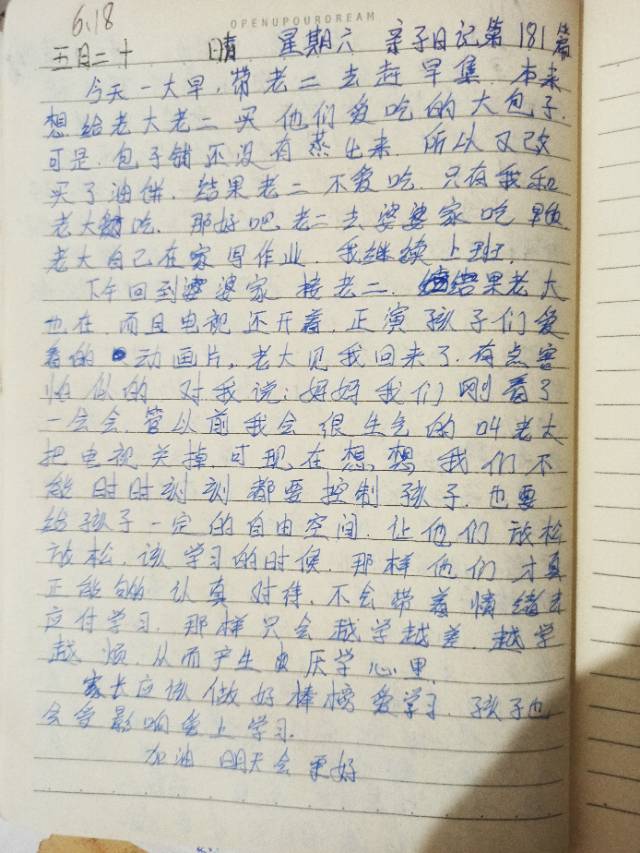 6.18
OPENUPOURDREAM
五月二十 晴 星期六 亲子日记第181篇
今天一大早，带老二去赶早集。本来
想给老大老二买他们爱吃的大包子.
可是.包子铺还没有蒸出来.所以又改
买了油饼.结果老二不爱吃.只有我和
老大吃.那好吧.老二去婆婆家吃早饭
老大自己在家写作业.我继续上班.
下午回到婆婆家.接老二.结果老大
也在.而且电视还开着.正演孩子们爱
看的动画片，老大见我回来了.有点害
怕似的对我说：妈妈我们刚看了
一会会.管以前我会很生气的叫老大
把电视关掉.可现在想想我们不
能时时刻刻都要控制孩子.也要
给孩子一定的自由空间.让他们放松
放松.该学习的时候.那样他们才真
正能够认真对待.不会带着情绪去
应付学习.那样只会越学越差.越学
越烦.从而产生厌学心里.
家长应该做好棒榜爱学习.孩子也
会受影响爱上学习.
加油 明天会更好